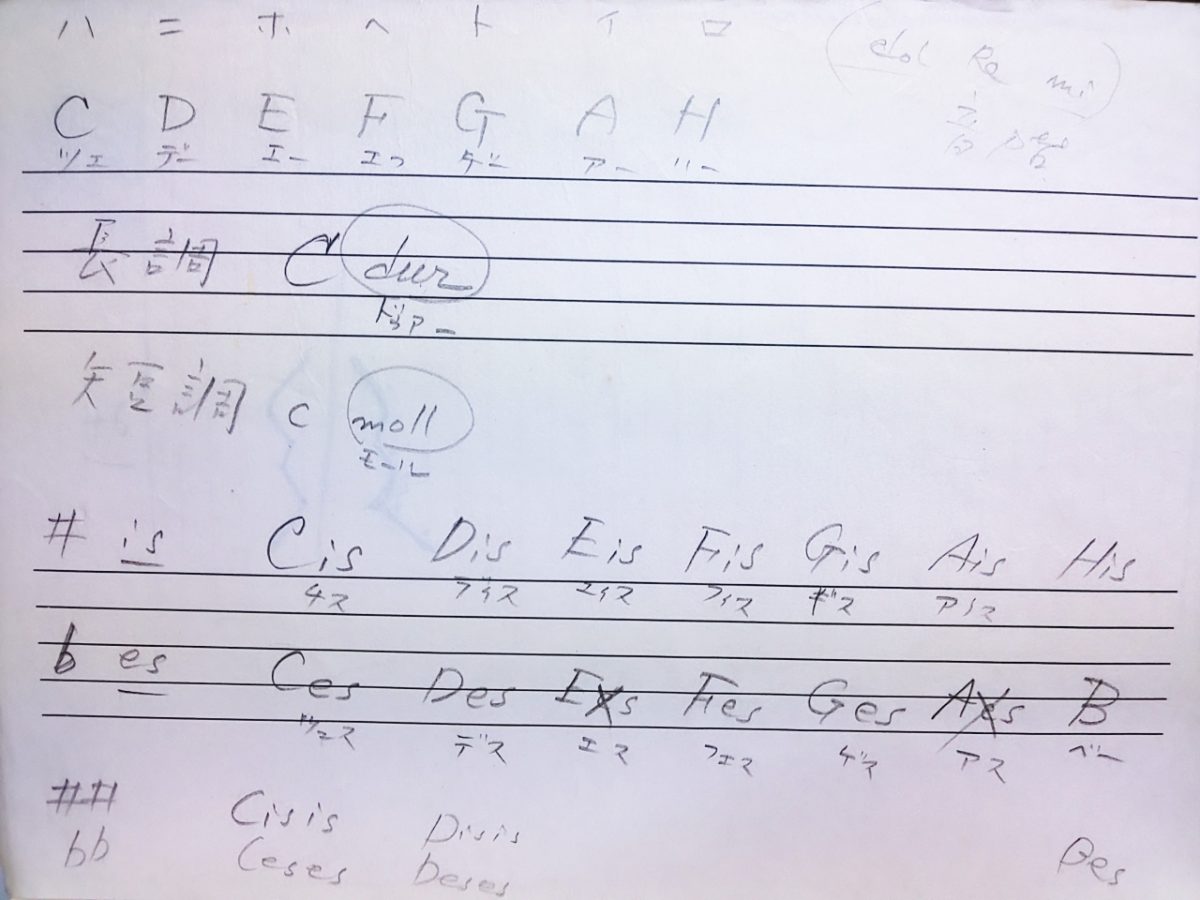 ハ ニ ホ ヘ ト イ ロ
C D E F G A H
ツェ デー エー エフ ゲー アー ハー
(dol Re mi)
長調 C dur
ドゥアー
短調 c moll
モール
# is Cis Dis Eis Fis Gis Ais His
チス ディス エイス フィス ギス アイス
b es Ces Des Es Fes Ges As B
ツェス デス エス フェス ゲス アス ベー
## Cisis Disis
bb Ceses Deses Bes